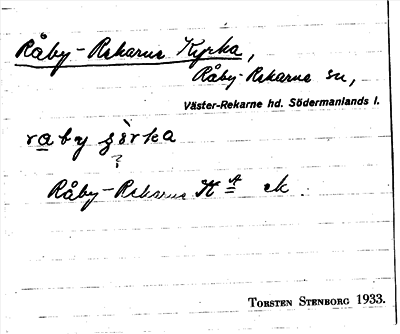 Råby-Rekarne Kyrka,
Råby-Rekarne sn,
Väster-Rekarne hd. Södermanlands l.
raby
?
Råby-Rekarne K:A ek.
TORSTEN STENBORG 1933.